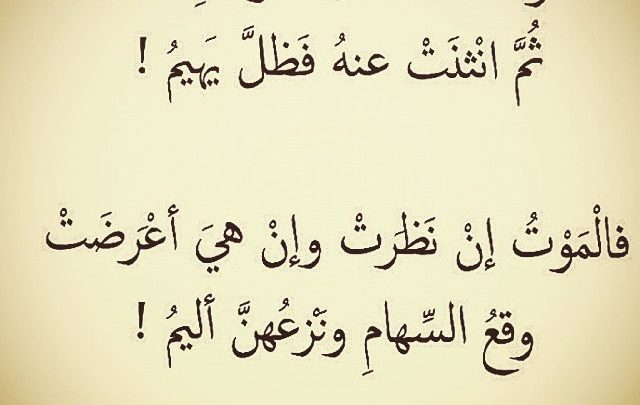 ثُمَّ انْثنَتْ عنهُ فَظلَّ يَهيمُ !
فالْمَوْتُ إنْ نَظَرتْ وإنْ هيَ أعْرَضَتْ
وقعُ السِّهامِ ونَزعُهنَّ أليمُ !